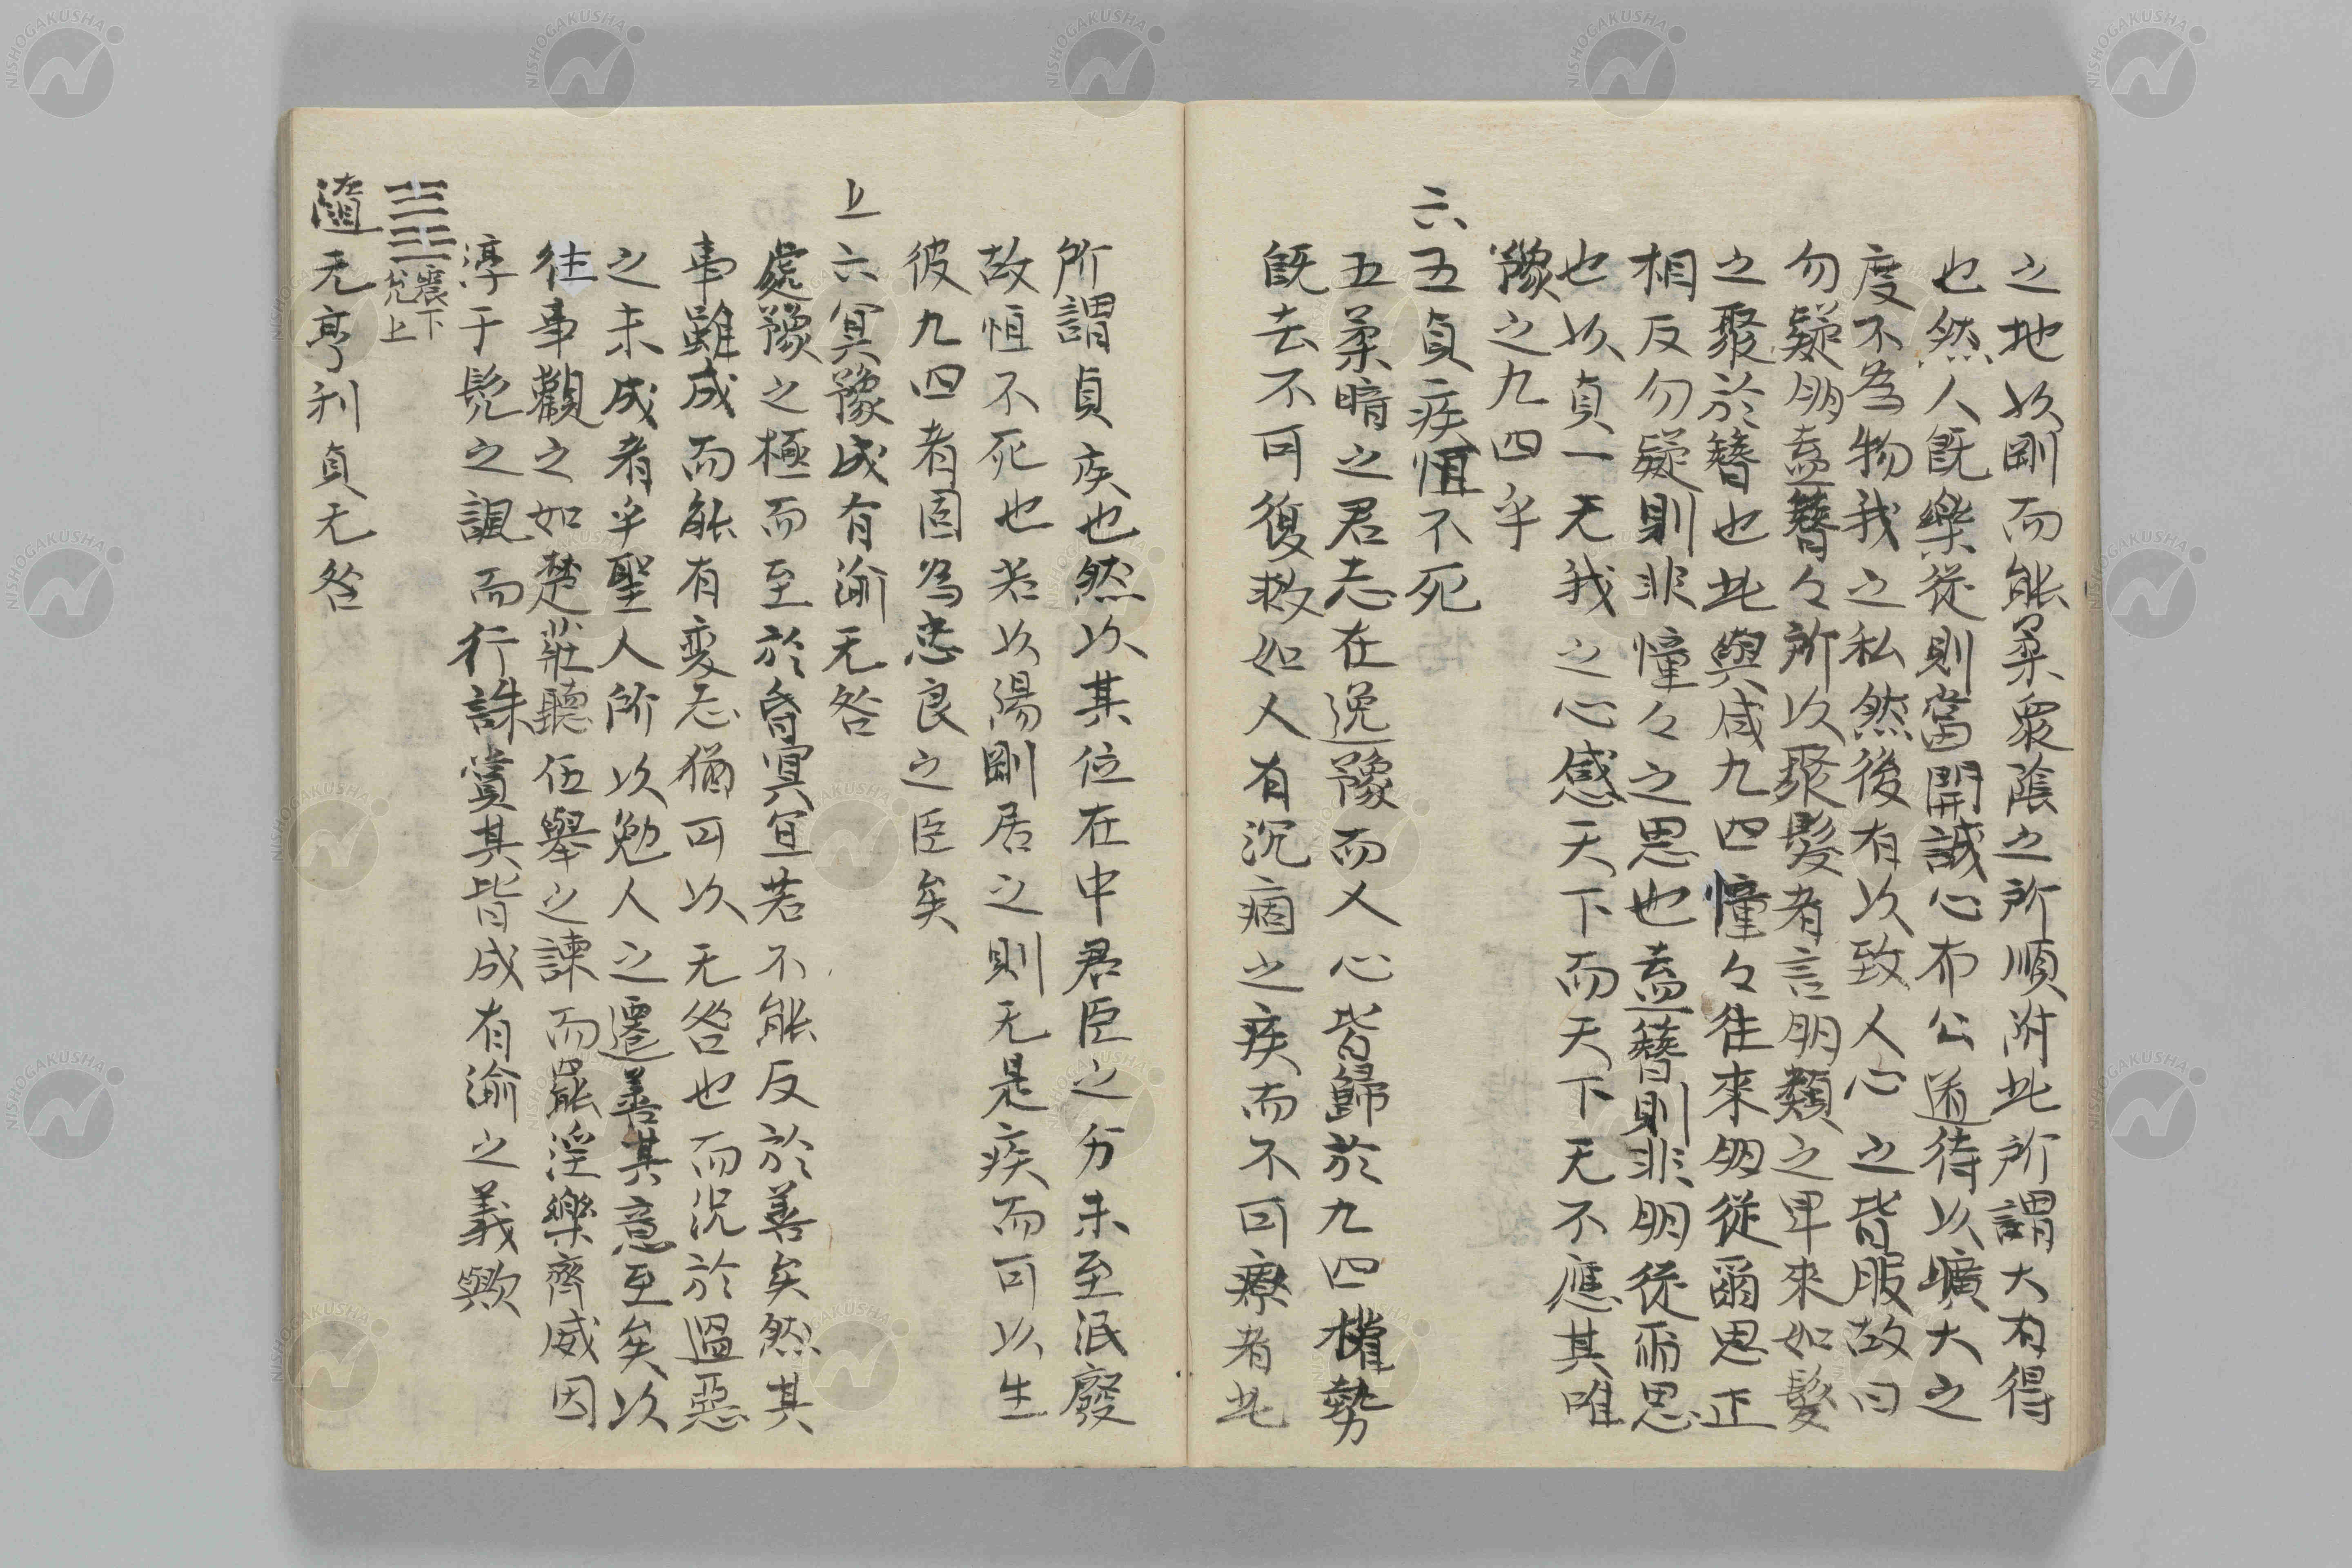 之地以剛而能柔衆陰之所順附此所謂大有得
也然人既樂從則當開誠心布公道待以壙大之
度不為物我之私然後有以致人心之皆服故曰
勿疑朋盍簪々所以聚髮者言朋類之畢來如髮
之聚於簪也此與咸九四憧々往來朋從爾思正
相反勿疑則非憧々之思也盍簪則非朋從爾思
也以貞一无我之心感天下而天下无不應其唯
豫之九四乎
六五貞疾恒不死
五柔暗之君志在逸豫而人心皆歸於九四權勢
既去不可復救如人有沉痼之疾而不可療者此
所謂貞疾也然以其位在中君臣之分未至泯廢
故恒不死也若以陽剛居之則无是疾而可以生
彼九四者固為忠良之臣矣
上六冥豫成有渝无咎
處豫之極而至於昏冥宜若不能反於善矣然其
事雖成而能有変志猶可以无咎也而況於過惡
之未成者乎聖人所以勉人之遷善其意至矣以
往事觀之如楚莊聽伍舉之諫而罷淫樂齊威因
淳于髡之諷而行誅賞其皆成有渝之義歟
震下
兌上
隨元亨利貞无咎
NISHOGAKUSHA